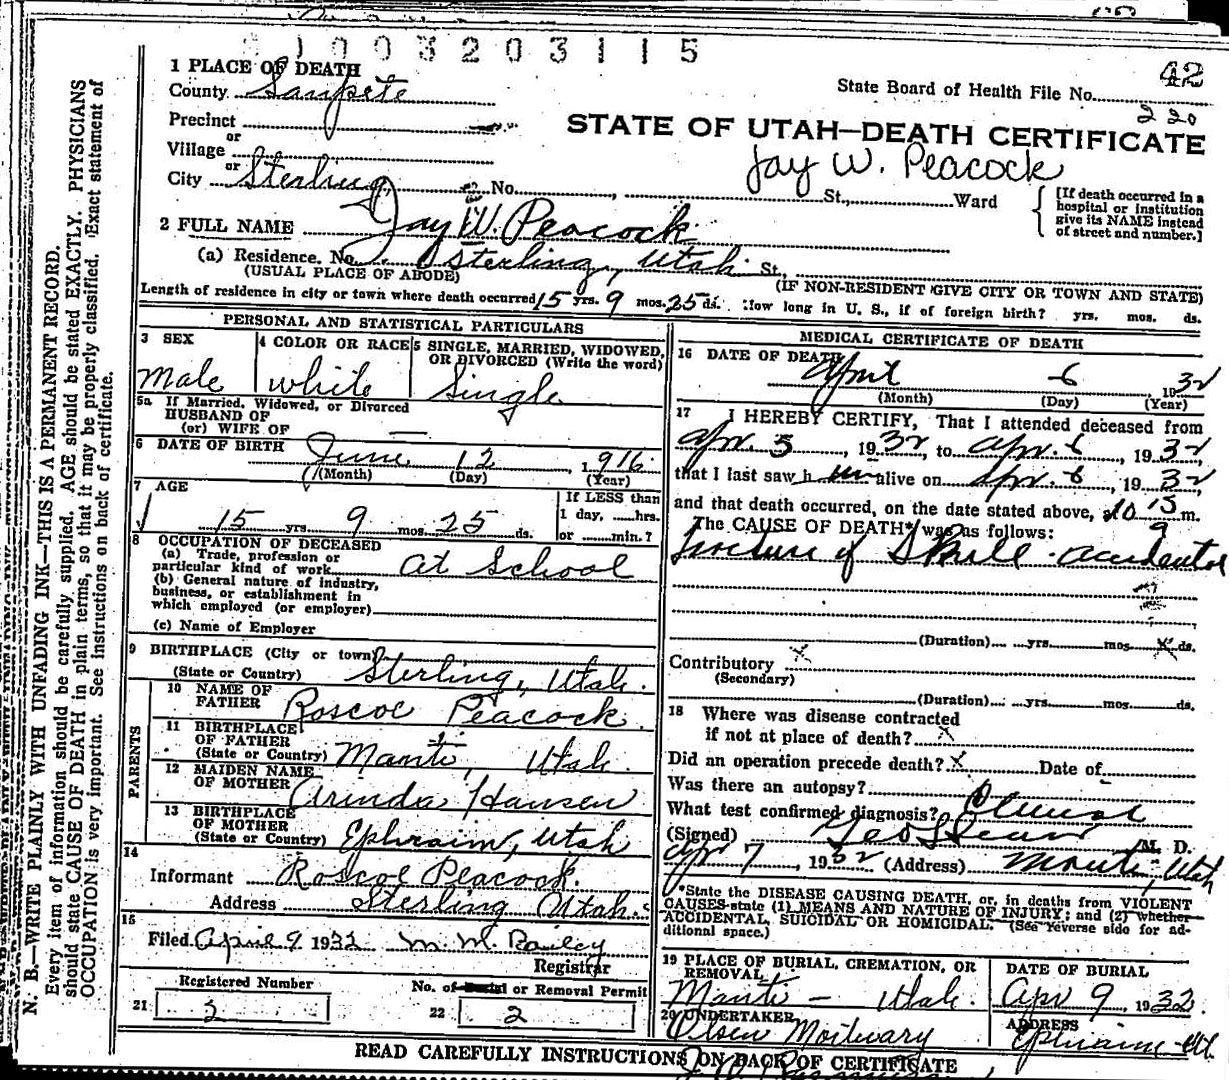 1003203115
42
1 PLACE OF DEATH
County Sanpete
State Board of Health File No. 220
Precinct
or
STATE OF UTAH—DEATH CERTIFICATE
Village
or
Jay W. Peacock
City Sterling No. St., Ward
[If death occurred in a hospital or institution give its NAME instead of street and number.]
2 FULL NAME Jay W. Peacock
(a) Residence. No. Sterling, Utah St.,
(USUAL PLACE OF ABODE) (IF NON-RESIDENT GIVE CITY OR TOWN AND STATE)
Length of residence in city or town where death occurred 15 yrs. 9 mos. 25 ds. How long in U. S., if of foreign birth? yrs. mos. ds.
PERSONAL AND STATISTICAL PARTICULARS
3 SEX 4 COLOR OR RACE 5 SINGLE, MARRIED, WIDOWED, OR DIVORCED (Write the word)
Male white Single
5a If Married, Widowed, or Divorced
HUSBAND OF
(or) WIFE OF —
6 DATE OF BIRTH June 12, 1916
(Month) (Day) (Year)
7 AGE If LESS than
15 yrs. 9 mos. 25 ds. 1 day, hrs.
or min.?
8 OCCUPATION OF DECEASED
(a) Trade, profession or
particular kind of work At School
(b) General nature of industry,
business, or establishment in
which employed (or employer)
(c) Name of Employer
9 BIRTHPLACE (City or town)
(State or Country) Sterling, Utah.
PARENTS
10 NAME OF
FATHER Roscoe Peacock.
11 BIRTHPLACE
OF FATHER
(State or Country) Manti, Utah.
12 MAIDEN NAME
OF MOTHER Arinda Hansen
13 BIRTHPLACE
OF MOTHER
(State or Country) Ephraim, Utah
14
Informant Roscoe Peacock.
Address Sterling Utah.
15
Filed April 9 1932 M. M. Bailey
Registrar
Registered Number No. of Burial or Removal Permit
21 2 22 2
MEDICAL CERTIFICATE OF DEATH
16 DATE OF DEATH April 6 1932
(Month) (Day) (Year)
17 I HEREBY CERTIFY, That I attended deceased from
Apr. 5, 1932, to Apr. 6, 1932,
that I last saw him alive on Apr. 6, 1932,
and that death occurred, on the date stated above, at 10 15 m.
The CAUSE OF DEATH* was as follows:
fracture of Skull - accidental
(Duration) yrs. mos. x ds.
Contributory x
(Secondary)
(Duration) yrs. mos. ds.
18 Where was disease contracted
if not at place of death? x
Did an operation precede death? x Date of
Was there an autopsy?
What test confirmed diagnosis? Clinical
(Signed) M. D.
Apr 7, 1932 (Address) Manti, Utah
*State the DISEASE CAUSING DEATH, or, in deaths from VIOLENT
CAUSES state (1) MEANS AND NATURE OF INJURY; and (2) whether
ACCIDENTAL, SUICIDAL OR HOMICIDAL. (See reverse side for ad-
ditional space.)
19 PLACE OF BURIAL, CREMATION, OR REMOVAL DATE OF BURIAL
Manti - Utah. Apr 9 1932
20 UNDERTAKER ADDRESS
Olsen Mortuary Ephraim Ut.
READ CAREFULLY INSTRUCTIONS ON BACK OF CERTIFICATE
N. B.—WRITE PLAINLY WITH UNFADING INK—THIS IS A PERMANENT RECORD.
Every item of information should be carefully supplied. AGE should be stated EXACTLY. PHYSICIANS
should state CAUSE OF DEATH in plain terms, so that it may be properly classified. Exact statement of
OCCUPATION is very important. See instructions on back of certificate.